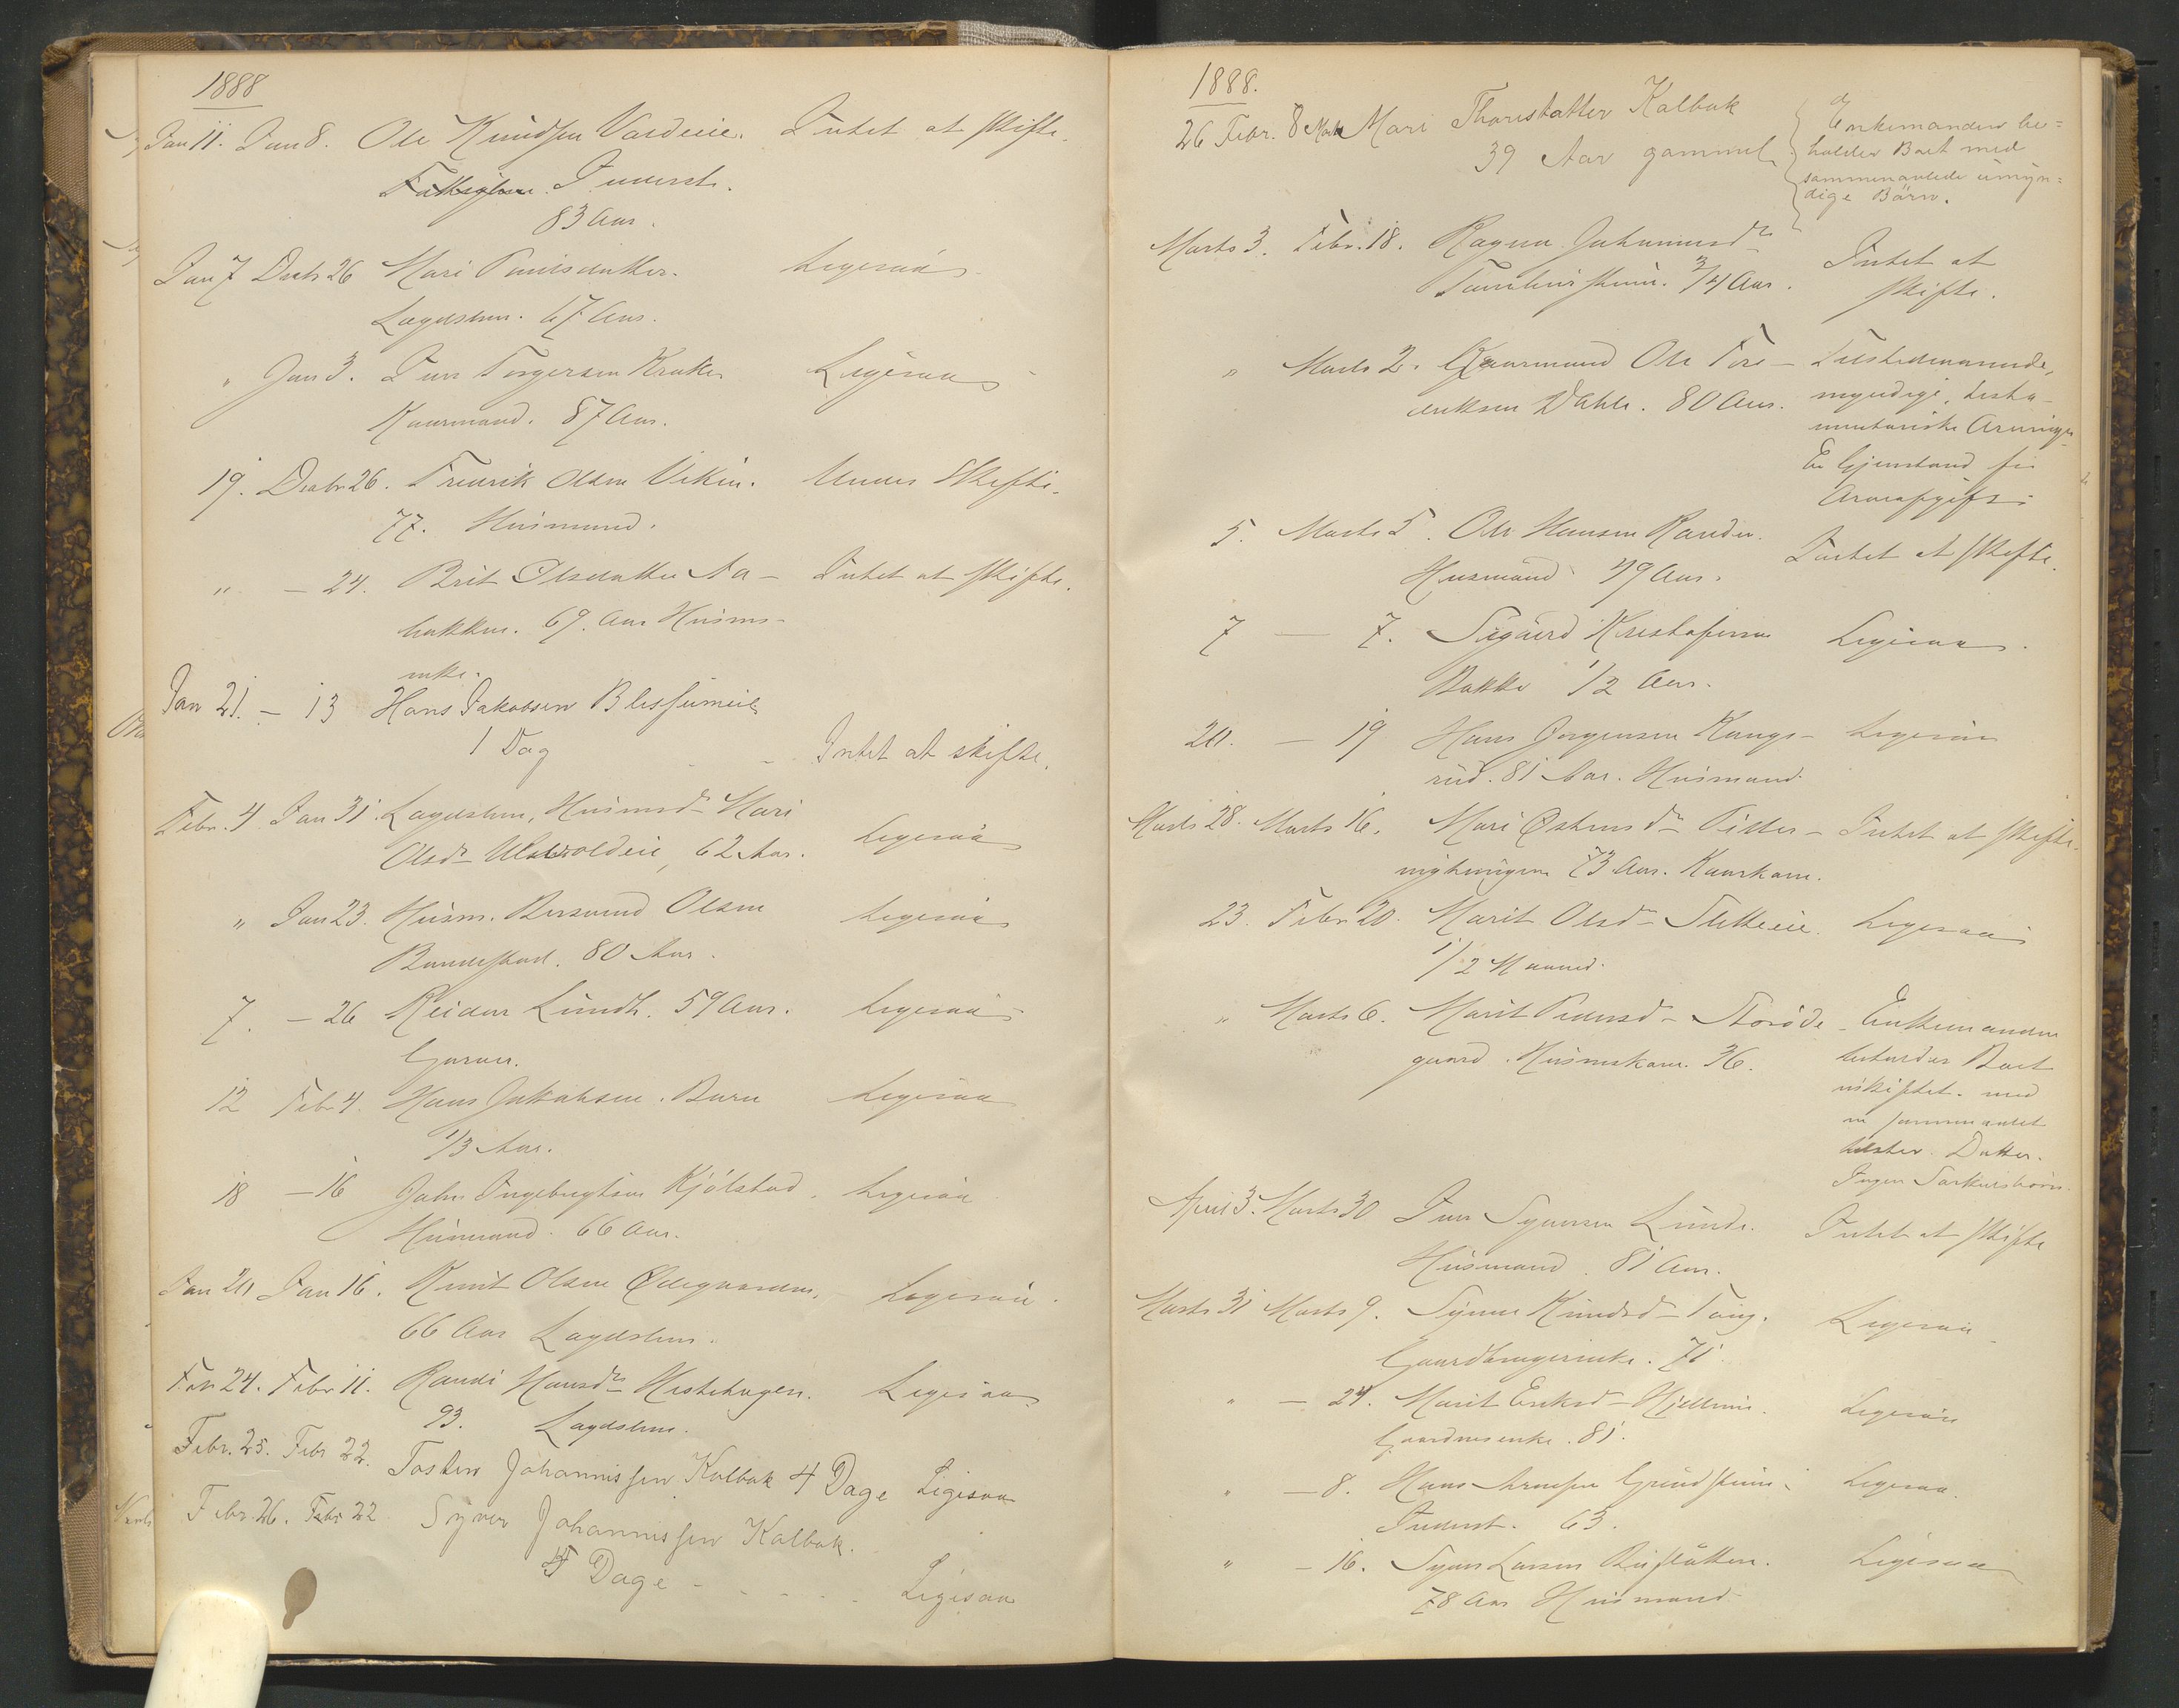 1888
Jan 11. Jan 8. Ole Knudsen Vardeeie. Intet at skifte.
Inderst.
83 Aar.
Jan 7 Decbr 26 Mari Paulsdatter. Ligesaa
Lægdslem. 67 Aar.
" Jan 3. Iver Torgersen Kruke Ligesaa
Kaarmand. 87 Aar.
19. Decbr 26. Fredrik Olsen Viken. Under Skifte.
77. Husmand.
" - 24. Brit Olsdatter Aa- Intet at skifte.
bakken. 69. Aar Husms-
enke.
Jan 21. - 13 Hans Jakobsen
1 Dag - - Intet at skifte.
Febr. 4 Jan 31. Lægdslem, Husmdr Mari
Olsdr 62 Aar. Ligesaa
" Jan 23. Husm. Olsen Ligesaa
80 Aar.
7. - 26 Reidar Lundh. 59 Aar. Ligesaa
Garver.
12 Febr 4. Hans Jakobsen. Ligesaa
1/3 Aar.
18 - 16 John Ingebregtsen Kjølstad. Ligesaa
Husmand. 66 Aar.
Jan 20 Jan 16. Knut Olsen Ødegaarden. Ligesaa.
66 Aar Lægdslem.
Febr 24. Febr 11. Randi Hansdr Hestehagen. Ligesaa
93. Lægdslem.
Febr. 25. Febr 22. Tosten Johannissen Kolbak 4 Dage Ligesaa
Febr. 26. Febr 22 Syver Johannissen Kolbak.
Dage - - - - Ligesaa
1888.
26 Febr. 8 Mari Kolbak
39 Aar gammel
Enkemanden be=
holder Boet med
sammenavlede umyn=
dige Børn.
Marts 3. Febr. 18. Ragna Johannesdr Intet at
3/4 Aar. skifte.
" Marts 2. Kaarmand Ole Tore- Tilstedeværende,
Dahle. 80 Aar. myndige, testa-
mentariske Arvinger
En Gjenstand for
Arveafgift.
5. Marts 5. Ole Hansen Randen. Intet at skifte.
Husmand 79 Aar.
7 - 7. Sigurd Kristofersen Ligesaa.
Bakke 1/2 Aar.
20. - 19 Hans Jørgensen Kongs- Ligesaa
rud. 81 Aar. Husmand.
Marts 28. Marts 16. Mari Østensdr - Intet at skifte.
73 Aar. Kaarkone.
23. Febr 20. Marit Olsdr Sletteeie. Ligesaa
1/2 Maaned.
" Marts 6. Marit Pedersd - Storøde- Enkemanden
gaard. Husmskone. 36. Boet
uskiftet med
en sammenavlet
Datter.
Ingen Særkuldsbørn.
April 3. Marts 30 Iver Syversen Lunde. Intet at skifte
Husmand. 81 Aar.
Marts 31 Marts 9. Synne Knudsd - Ligesaa
Gaardbrugerenke. 71.
" - 24. Marit Eriksd - Ligesaa
Gaardmsenke. 81.
" - 8. Hans Ligesaa.
Inderst. 63.
" - 16. Syver Larsen Ligesaa
78 Aar Husmand